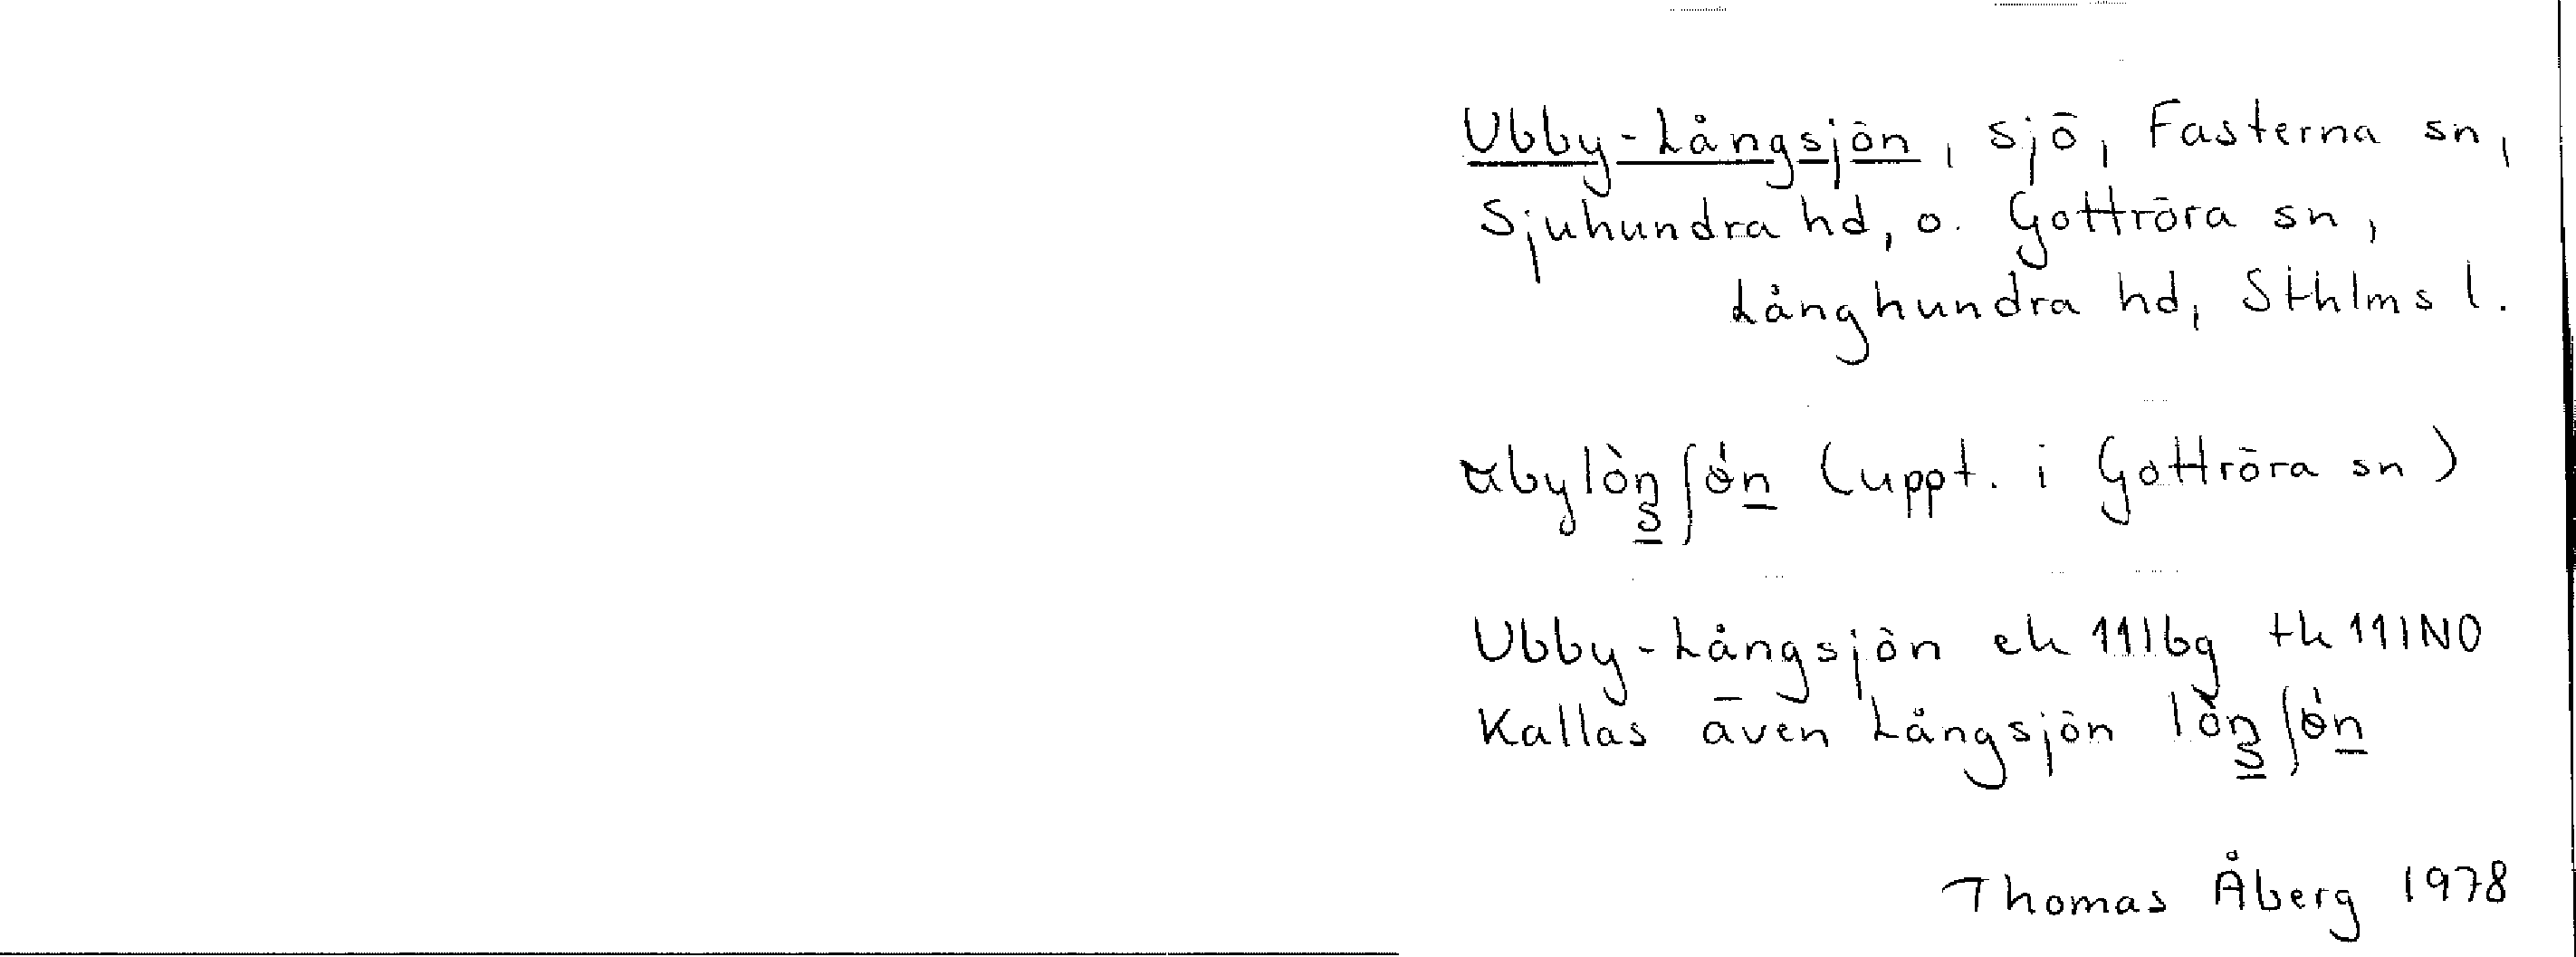 Ubby-Långsjön, sjö, Fasterna sn,
Sjuhundra hd, o. Gottröra sn,
Långhundra hd, Sthlms l.
(uppt. i Gottröra sn)
Ubby-Långsjön ek 11I6g tk 11INO
Kallas även Långsjön
Thomas Åberg 1978